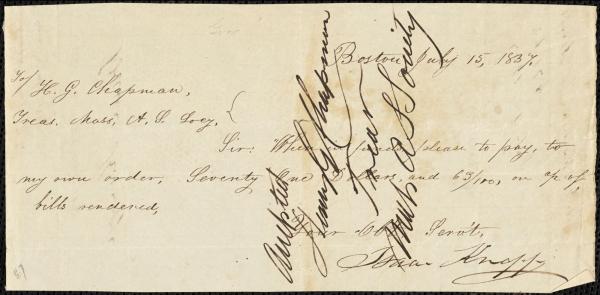 Boston July 15, 1837.
To/ H. G. Chapman,
Treas. Mass. A. S. Socy.
Sir: When in funds please to pay, to
my own order, Seventy One Dollars, and 63/100, on a/c of
bills rendered,
Your Obt. Servt.
Isaac Knapp
Accepted
Henry G Chapman
Trear
Mass A S Society